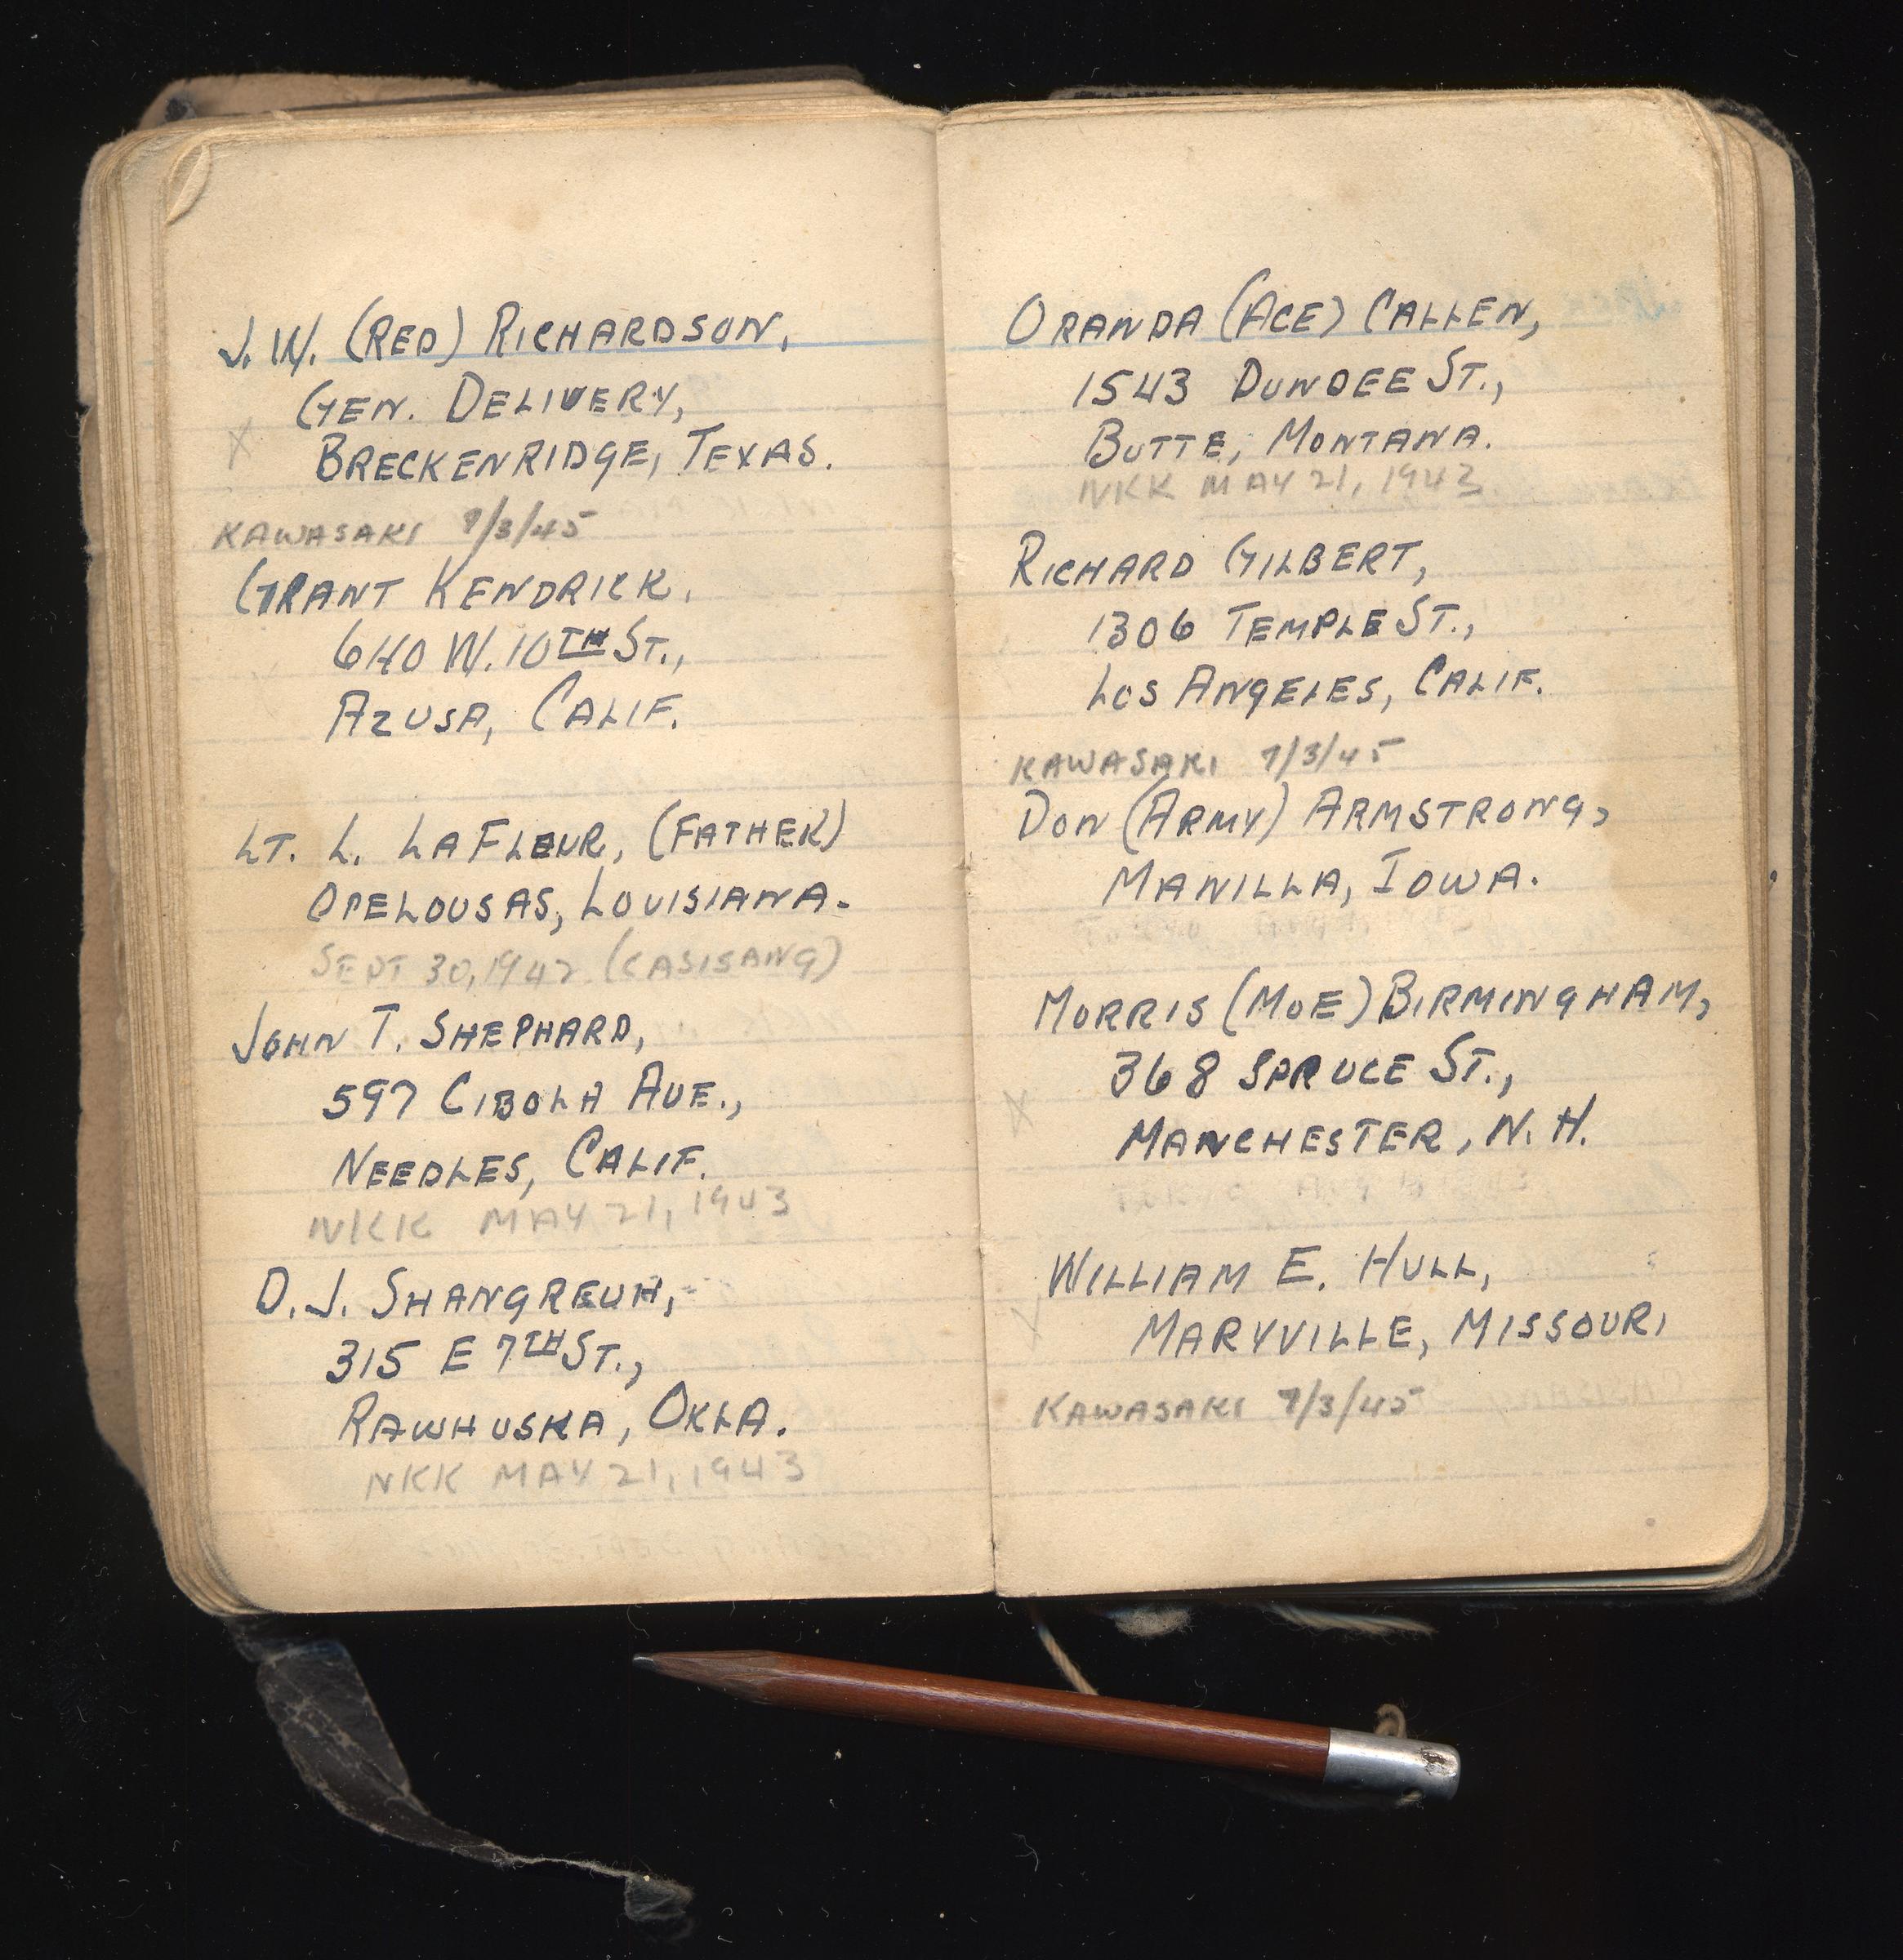 J. W. (RED) RICHARDSON,
GEN. DELIVERY,
X
BRECKENRIDGE, TEXAS.
KAWASAKI 7/3/45
GRANT KENDRICK,
640 W. 10TH ST.,
AZUSA, CALIF.
LT. L. LAFLEUR, (FATHER)
OPELOUSAS, LOUISIANA.
SEPT 30, 1942 (CASISANG)
JOHN T. SHEPHARD,
597 CIBOLA AVE.,
NEEDLES, CALIF.
NKK MAY 21, 1943
D. J. SHANGREUH,
315 E 7TH ST.,
PAWHUSKA, OKLA.
NKK MAY 21, 1943
ORANDA (ACE) CALLEN,
1543 DUNDEE ST.,
BUTTE, MONTANA.
NKK MAY 21, 1943
RICHARD GILBERT,
1306 TEMPLE ST.,
LOS ANGELES, CALIF.
KAWASAKI 7/3/45
DON (ARMY) ARMSTRONG,
MANILLA, IOWA.
MORRIS (MOE) BIRMINGHAM,
368 SPRUCE ST.,
X
MANCHESTER, N. H.
WILLIAM E. HULL,
X
MARYVILLE, MISSOURI
KAWASAKI 7/3/45